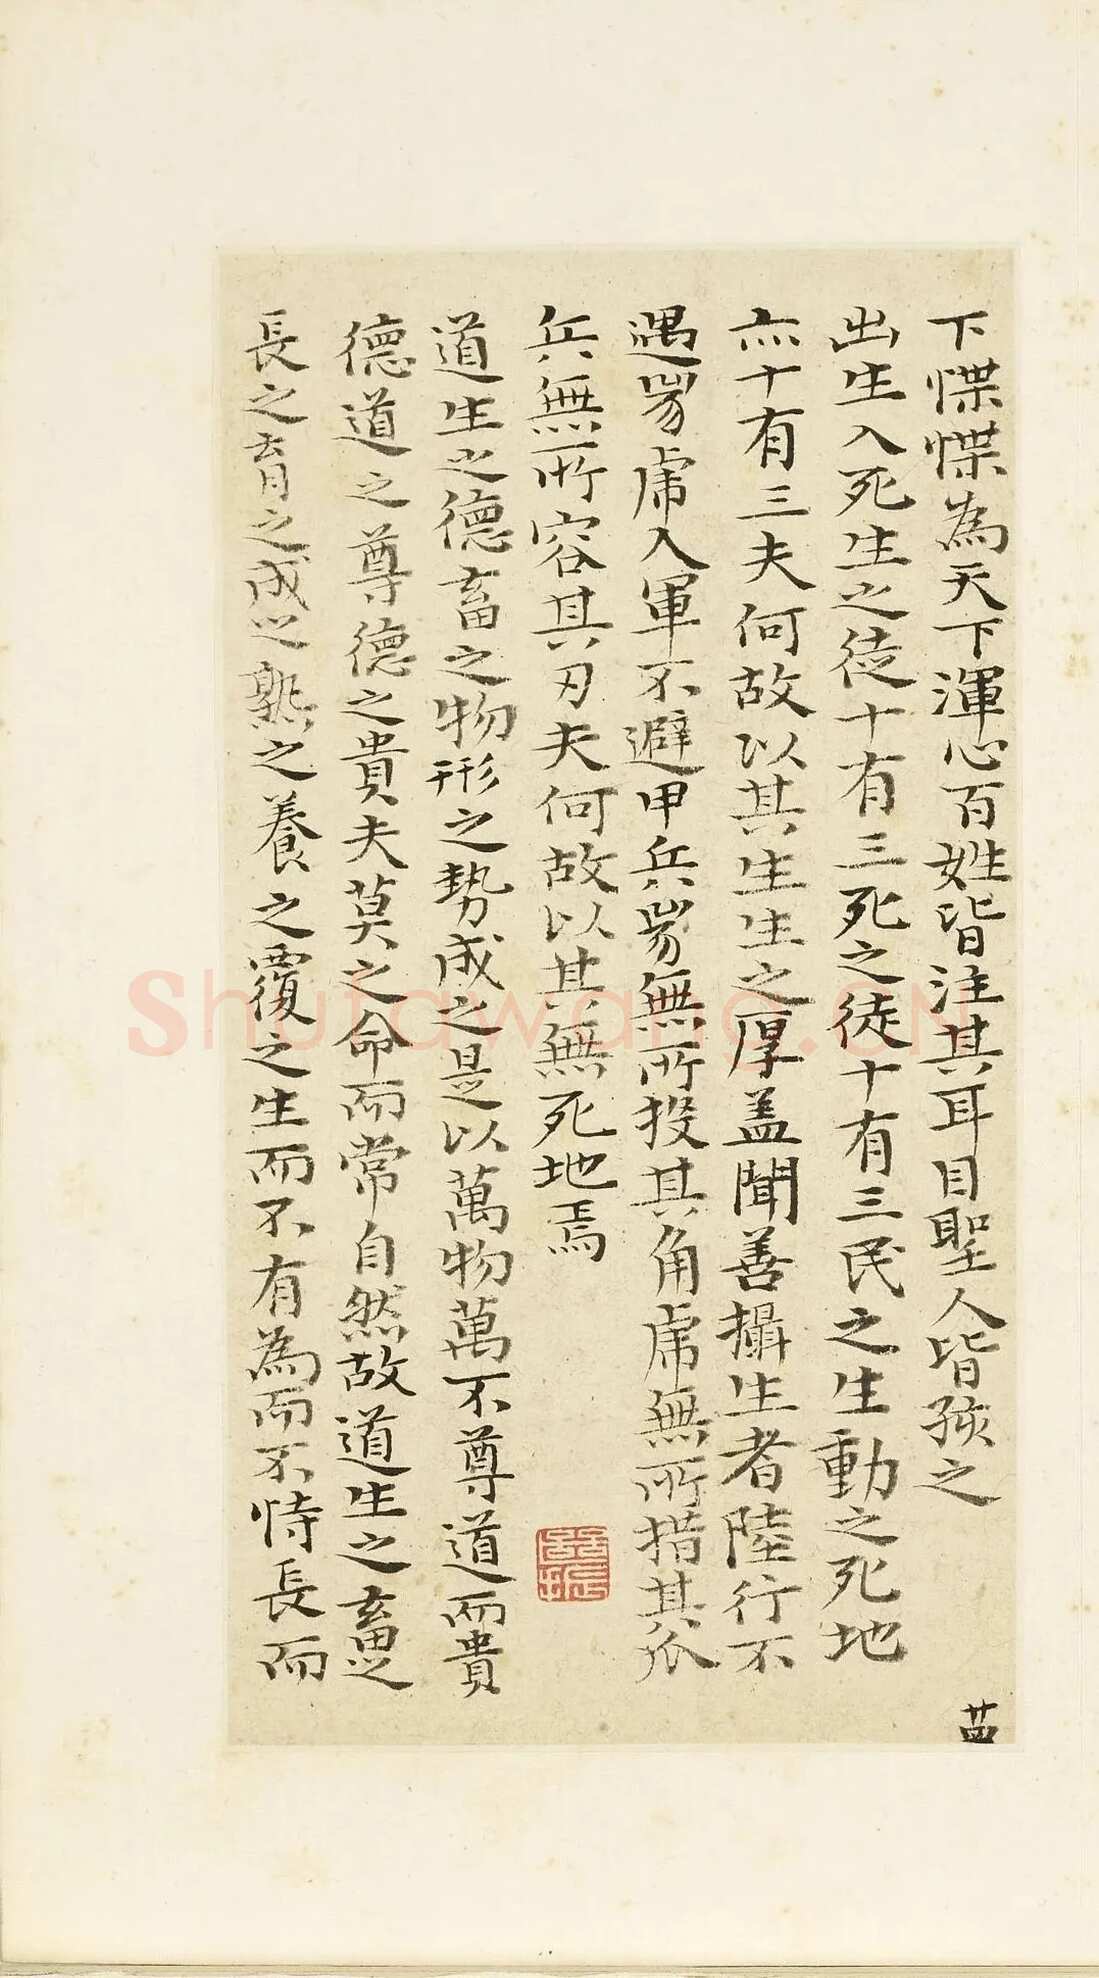 下惵惵為天下渾心百姓皆注其耳目聖人皆孩之
出生入死生之徒十有三死之徒十有三民之生動之死地
亦十有三夫何故以其生生之厚盖聞善攝生者陸行不
遇兕虎入軍不避甲兵兕無所投其角虎無所措其爪
兵無所容其刃夫何故以其無死地焉
道生之德畜之物形之勢成之是以萬物萬不尊道而貴
德道之尊德之貴夫莫之命而常自然故道生之畜之
長之育之成之熟之養之覆之生而不有為而不恃長而
廿四
Shufawang.CN